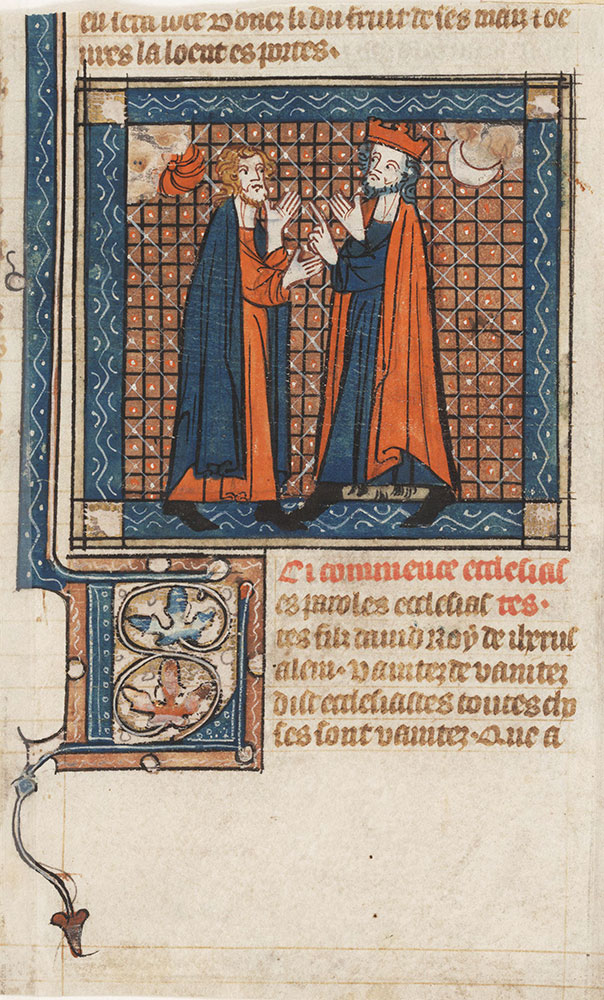 Donez li du fruit de ses mainz oe
ures la loent es portes.
Ci commence ecclesias
Les paroles ecclesias tes.
tes filz david Roy de iherus
alem. Vanitez de vanitez
dist ecclesiastes toutes cho
ses sont vanitez. Que a